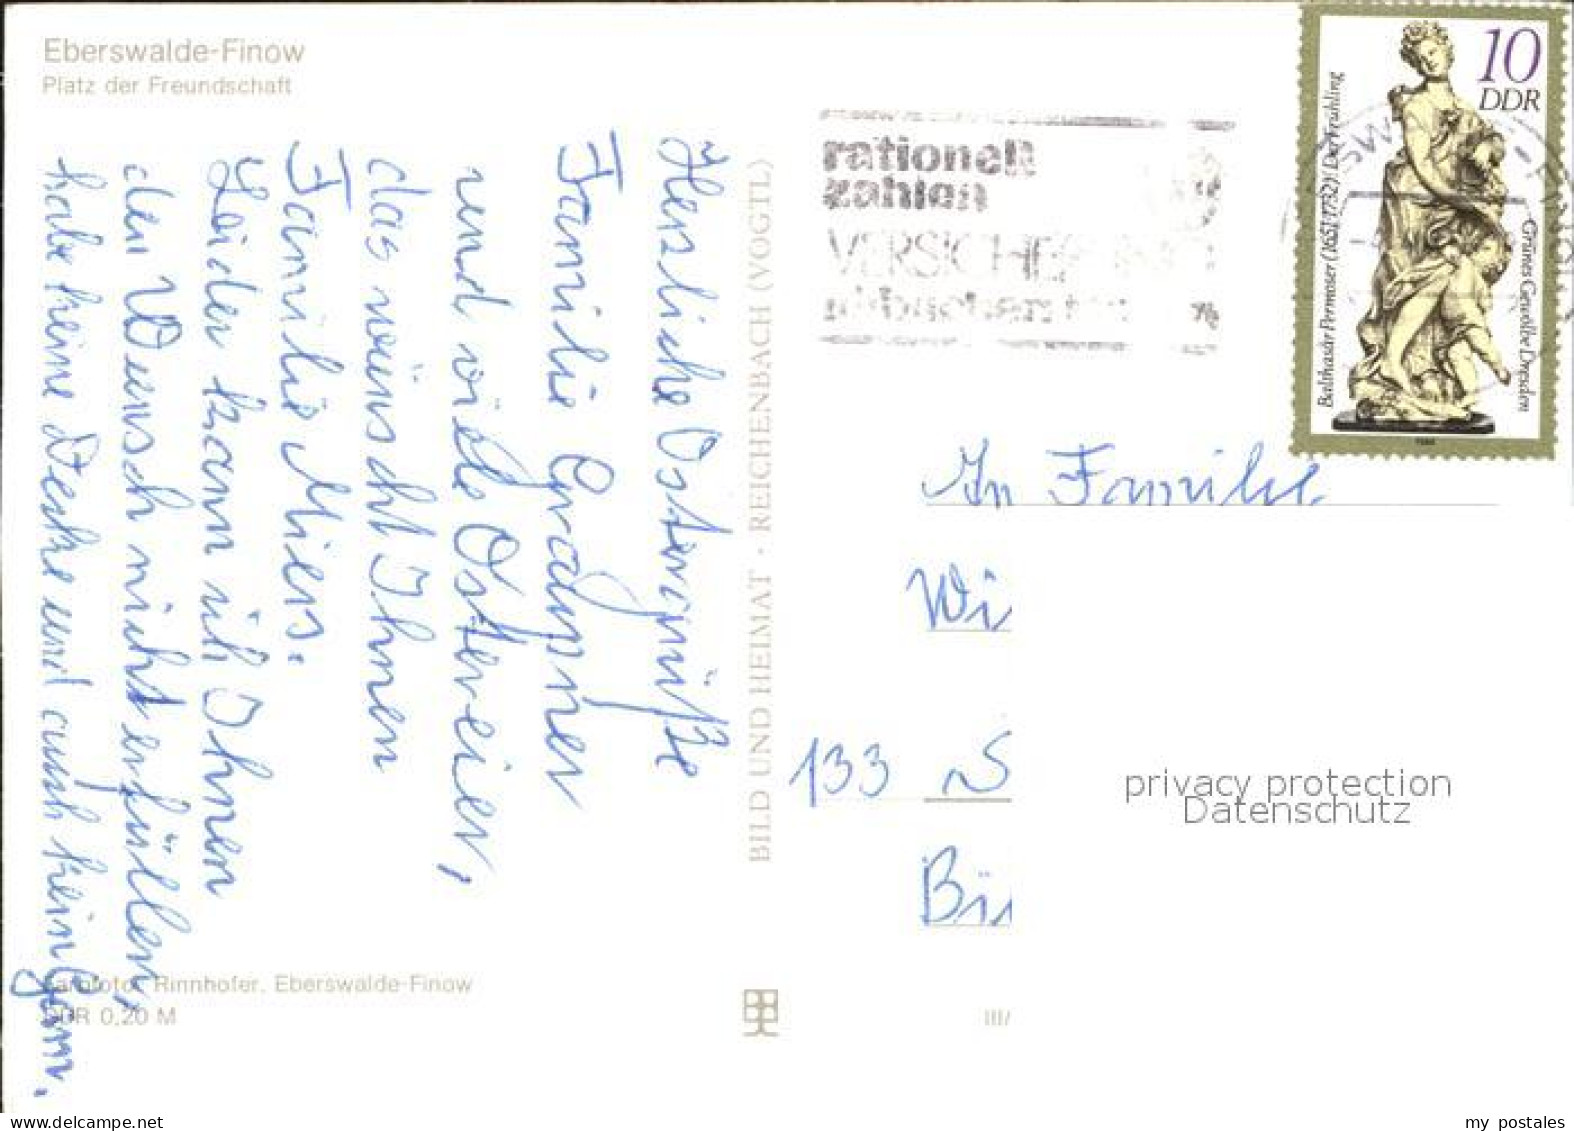 Eberswalde-Finow
Platz der Freundschaft
Herzliche Ostergrüße
Familie Grapner
und viele Ostereier,
das wünscht Ihnen
Familie Miers.
Leider kann ich Ihnen
den Wunsch nicht erfüllen,
habe keine Decke und auch kein Garn.
Farbfoto: Rinnhofer, Eberswalde-Finow
DDR 0,20 M
BILD UND HEIMAT · REICHENBACH (VOGTL)
III/
rationell
zahlen
10
DDR
Balthasar Permoser (1651-1732): Der Frühling
Grünes Gewölbe Dresden
1984
An Familie
Wi
133
Bi
privacy protection
Datenschutz
my postales